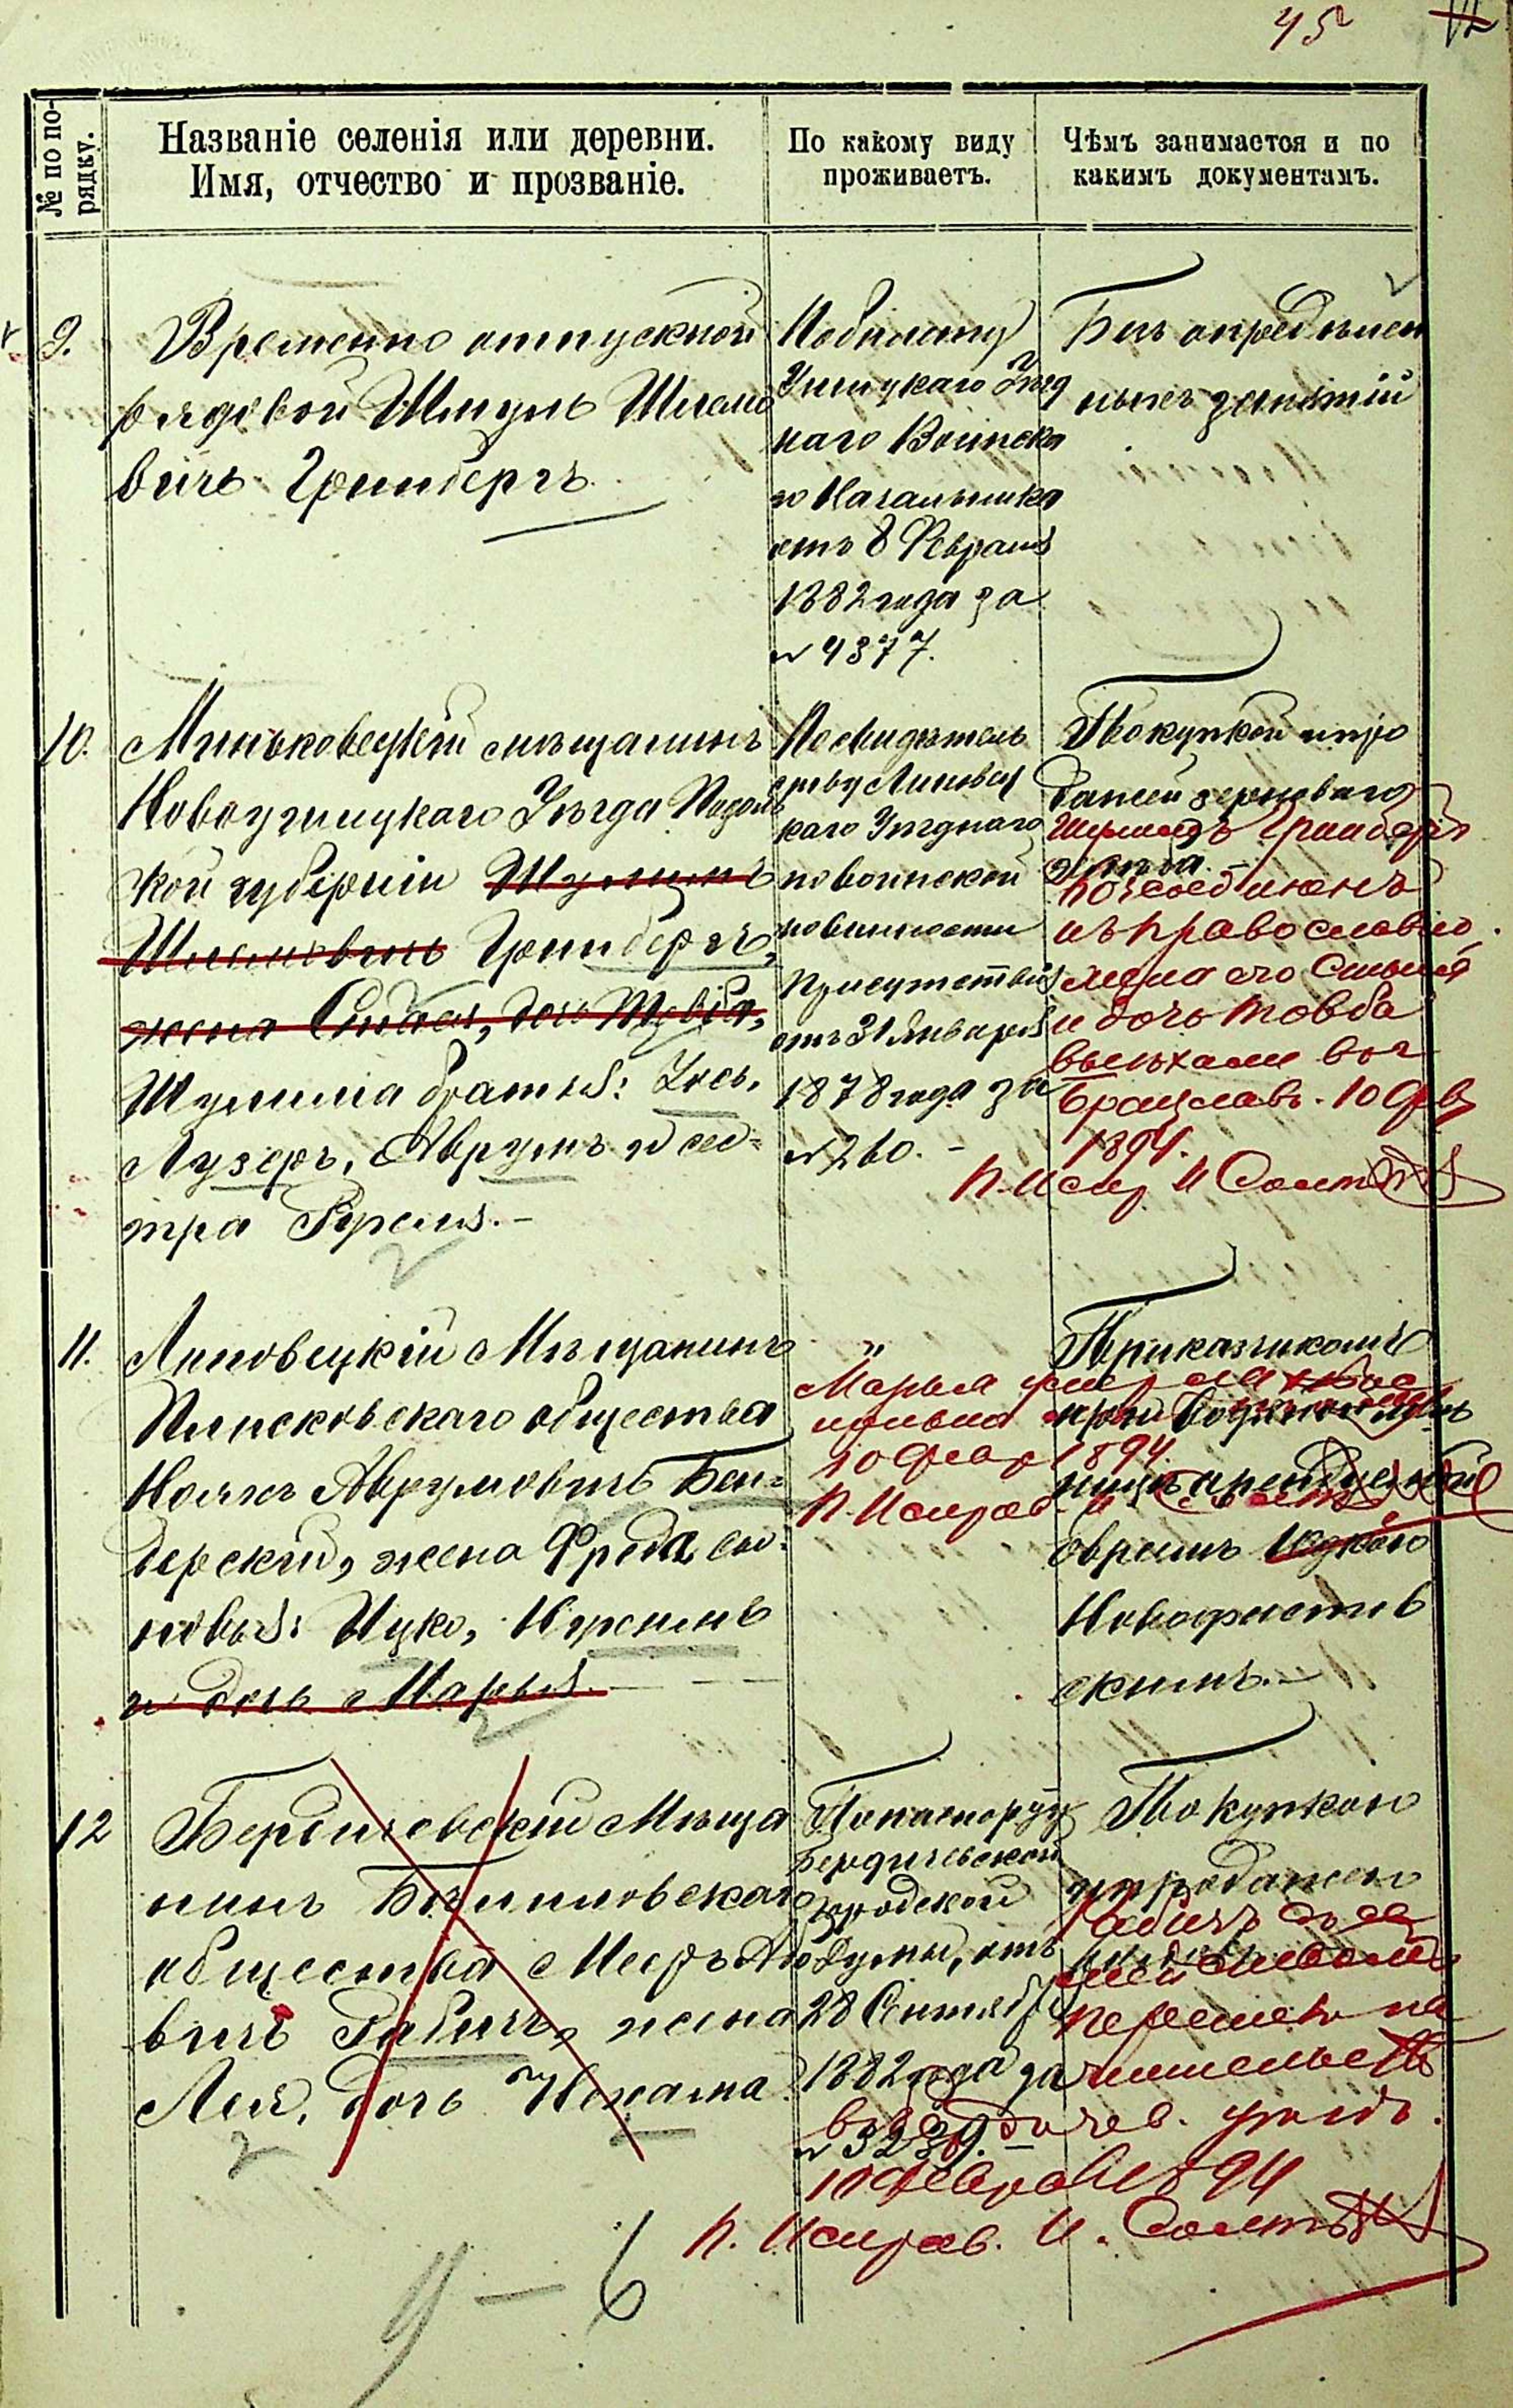 45
№ по по-
рядку.
Названіе селенія или деревни.
Имя, отчество и прозваніе.
По какому виду
проживаетъ.
Чѣмъ занимается и по
какимъ документамъ.
9.
Временно отпускной
рядовой Шмуль Шлемо
вичъ Гринбергъ
По билету
Ушицкаго Уѣзд
наго Воинска
го Начальника
отъ 8 Февраля
1882 года за
№ 4377.
Безъ опредѣлен
ныхъ занятій
10.
Миньковецкій мѣщанинъ
Новоушицкаго Уѣзда Подоль
кой губерніи Шулимъ
Шлемовичъ Гринбергъ,
жена Сибля, дочь Товба,
Шулима братья: Хось,
Лузеръ, Аврумъ и сес-
тра Фрейля.-
По свидѣтель
ству Липовец
каго Уѣзднаго
по воинской
повинности
Присутствія
отъ 31 Января
1878 года за
№ 260.-
Покупкой и про
дажей зерноваго
хлѣба.-
Шулимъ Гринбергъ
присоединенъ
къ православію.
жена его
и дочь Товба
выехали въ г
Брацлавъ. 10 Фев
1894.
П. Испр И
11.
Липовецкій Мѣщанинъ
Плисковскаго общества
Нояхъ Аврумовичъ Бен-
дерскій, жена Фрейда, сы-
новья: Ицко, Нусимъ
и дочь Марья.
"
Марья умерла
10 Февр 1894.
П. Исправ. И
Прикащикомъ
при водяной мель
ницѣ арендуемой
евреемъ Ицкою
Новофастов
скимъ.-
12
Бердичевскій Мѣща
нинъ
общества Мееръ Або
вичъ Рабичъ, жена
Лея, дочь Нехама
По паспорту
Бердичевской
городской
Думы, отъ
28 Сентября
1882 года за
№ 3239.-
Покупкою
и продажею
Рабичъ съ се
перешелъ на
жительство
въ Бердичев. уѣздъ.
10 Февраля 1894
П. Исправ. И.
9 - 6